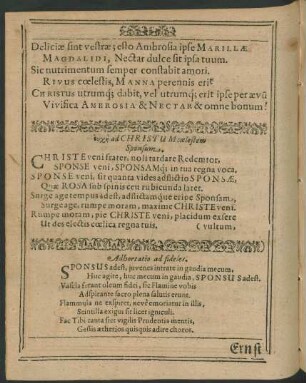 Deliciæ sint vestræ; esto Ambrosia ipse MARILLÆ
MAGDALIDI, Nectar dulce sit ipsa tuum.
Sic nutrimentum semper constabit amori.
RIVUS cœlestis, MANNA perennis erit
CHRISTUS utrumq; dabit, vel utrumq; erit ipse per ævũ
Vivifica AMBROSIA & NECTAR & omne bonum!
ad CHRISTUM cœlestem
Sponsum.
CHRISTE veni frater, noli tardare Redemtor,
SPONSE veni, SPONSAMq; in tua regna voca.
SPONSE veni, sit quanta vides afflictio SPONSÆ,
Quæ ROSA sub spinis ceu rubicunda latet.
Surge age tempus adest, afflictamque eripe Sponsam,
Surge age, rumpe moram, maxime CHRISTE veni.
Rumpe moram, pie CHRISTE veni, placidum exsere
Ut des ejectis cœlica regna tuis. (vultum,
Adhortatio ad fideles.
SPONSUS adest, juvenes intrate in gaudia mecum,
Huc agite, huc mecum in gaudia, SPONSUS adest.
Vascla ferant oleum fidei, sic Flamine vobis
Adspirante sacro plena saluti erunt.
Flammula ne exspiret, neve emoriatur in illis,
Scintilla exigua sit licet igniculi.
Fac Tibi cauta siet vigilis Prudentia mentis,
Gestis æthereos quisquis adire choros.
Ernst